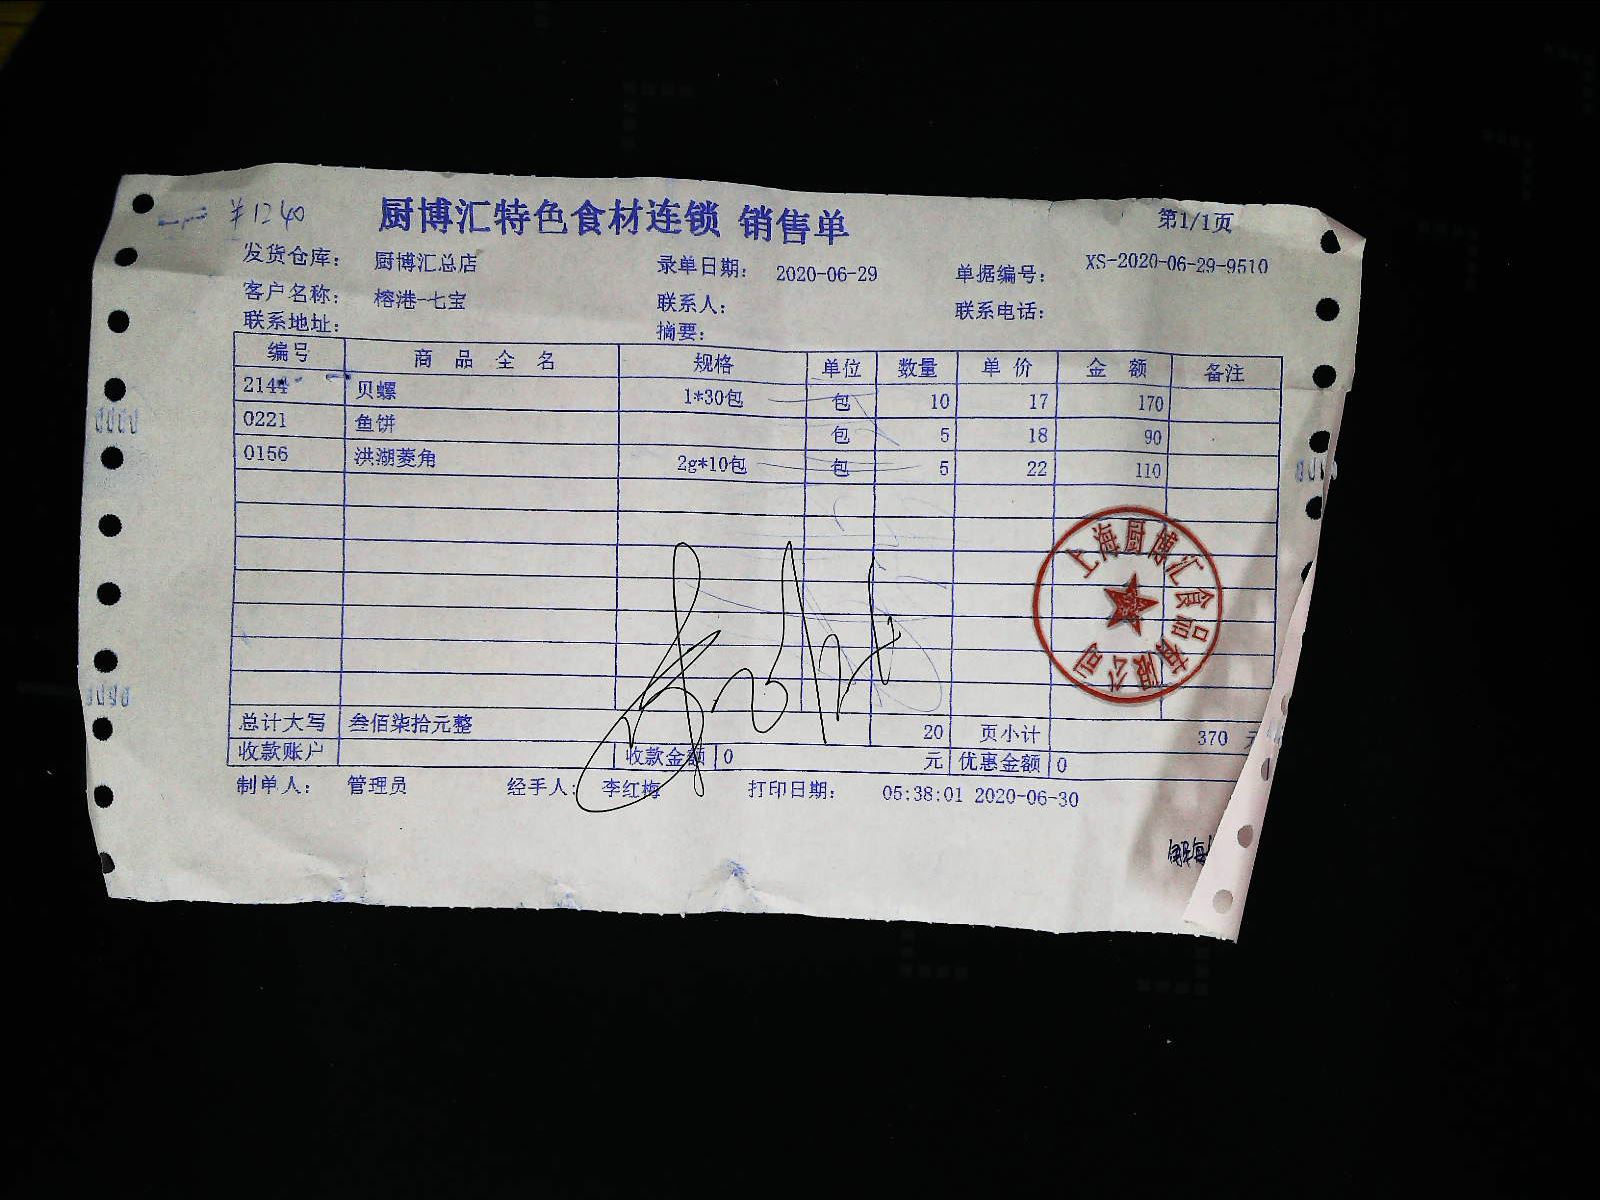 ¥1240
厨博汇特色食材连锁 销售单 第1/1页
发货仓库: 厨博汇总店 录单日期: 2020-06-29 单据编号: XS-2020-06-29-9510
客户名称: 榕港-七宝 联系人: 联系电话:
联系地址: 摘要:
编号 商品全名 规格 单位 数量 单价 金额 备注
2144 贝螺 1*30包 包 10 17 170
0221 鱼饼 包 5 18 90
0156 洪湖菱角 2g*10包 包 5 22 110
上海厨博汇食品有限公司
总计大写 叁佰柒拾元整 20 页小计 370 元
收款账户 收款金额 0 元 优惠金额 0
制单人: 管理员 经手人: 李红梅 打印日期: 05:38:01 2020-06-30